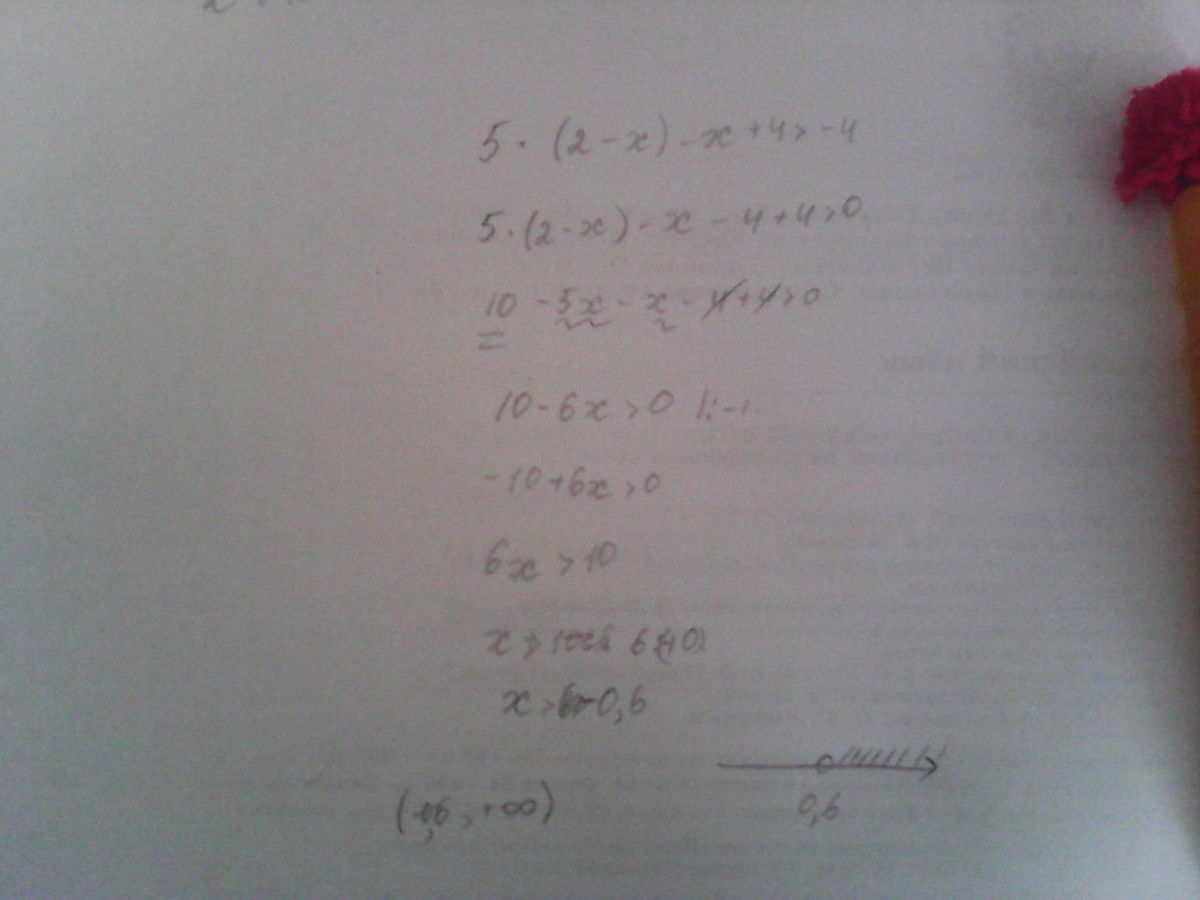 5 · (2 - x) - x + 4 > -4
5 · (2 - x) - x - 4 + 4 > 0
10 - 5x - x - 4 + 4 > 0
10 - 6x > 0 |: -1
-10 + 6x > 0
6x > 10
x > 6
x > 0,6
0,6
( 0,6 , +∞)